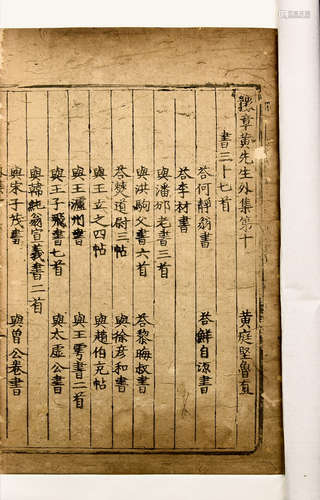 豫章黃先生外集第十
黃庭堅魯直
書三十七首
荅何靜翁書
荅鮮自源書
荅李材書
與潘邠老書三首
與洪駒父書六首
荅黎晦叔書
荅燹道尉三帖
與徐彦和書
與王立之四帖
與趙伯充帖
與王瀘州書
與王雩書二首
與王子飛書七首
與太虛公書
與純翁宣義書二首
與宋子茂書
與曾公卷書